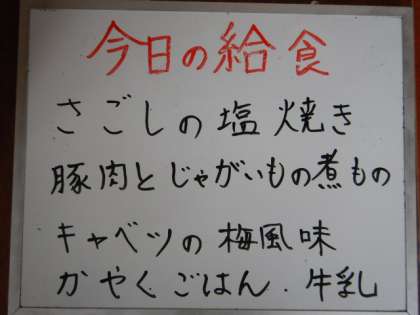 今日の給食
さごしの塩焼き
豚肉とじゃがいもの煮もの
キャベツの梅風味
かやくごはん.牛乳